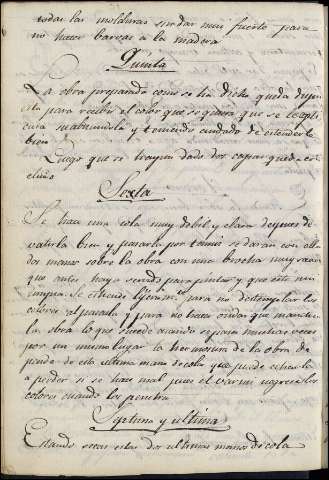 todas las molduras sin dar mui fuerte para
no hacer barcas a la madera
Quinta
La obra preparada como se ha dicho queda dispu
esta para recibir el color que se quiera que se le apli
cara mabiendola y teniendo cuidado de estenderle
bien
Luego que se hayan dado dos capas queda co
cluiso
Sexta
Se hace una cola muy debil y clara despues de
vatirla bien y pasarla por tamiz se daran con ella
dos manos sobre la obra con una brocha muy suave
que antes haya servido para pintar y que este mui
limpia. Se estiende lijeram.te para no destemplar los
colores al pasarla y para no hacer ondas que manchen
la obra lo que sucede cuando se pasa muchas veces
por un mismo lugar la hermosura de la obra de
pende de esta ultima mano de cola que puede echarla
a perder si se hace mal pues el varniz negrea los
colores cuando los penetra
Septima y ultima
Estando secas estas dos ultimas manos de cola